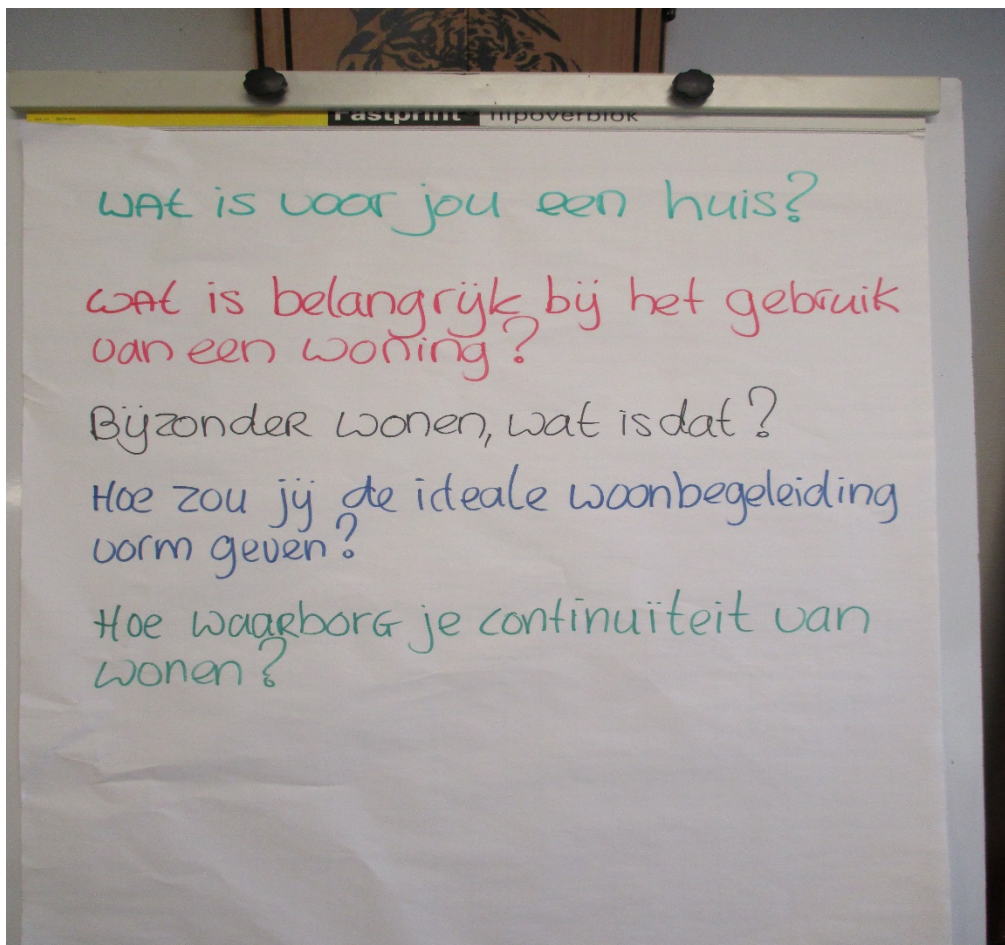 Fastprint flipoverblok
WAt is voor jou een huis?
WAt is belangrijk bij het gebruik
van een woning?
BijzondeR wonen, wat is dat?
Hoe zou jij de ideale woonbegeleiding
vorm geven?
Hoe waaRborG je continuïteit van
wonen?